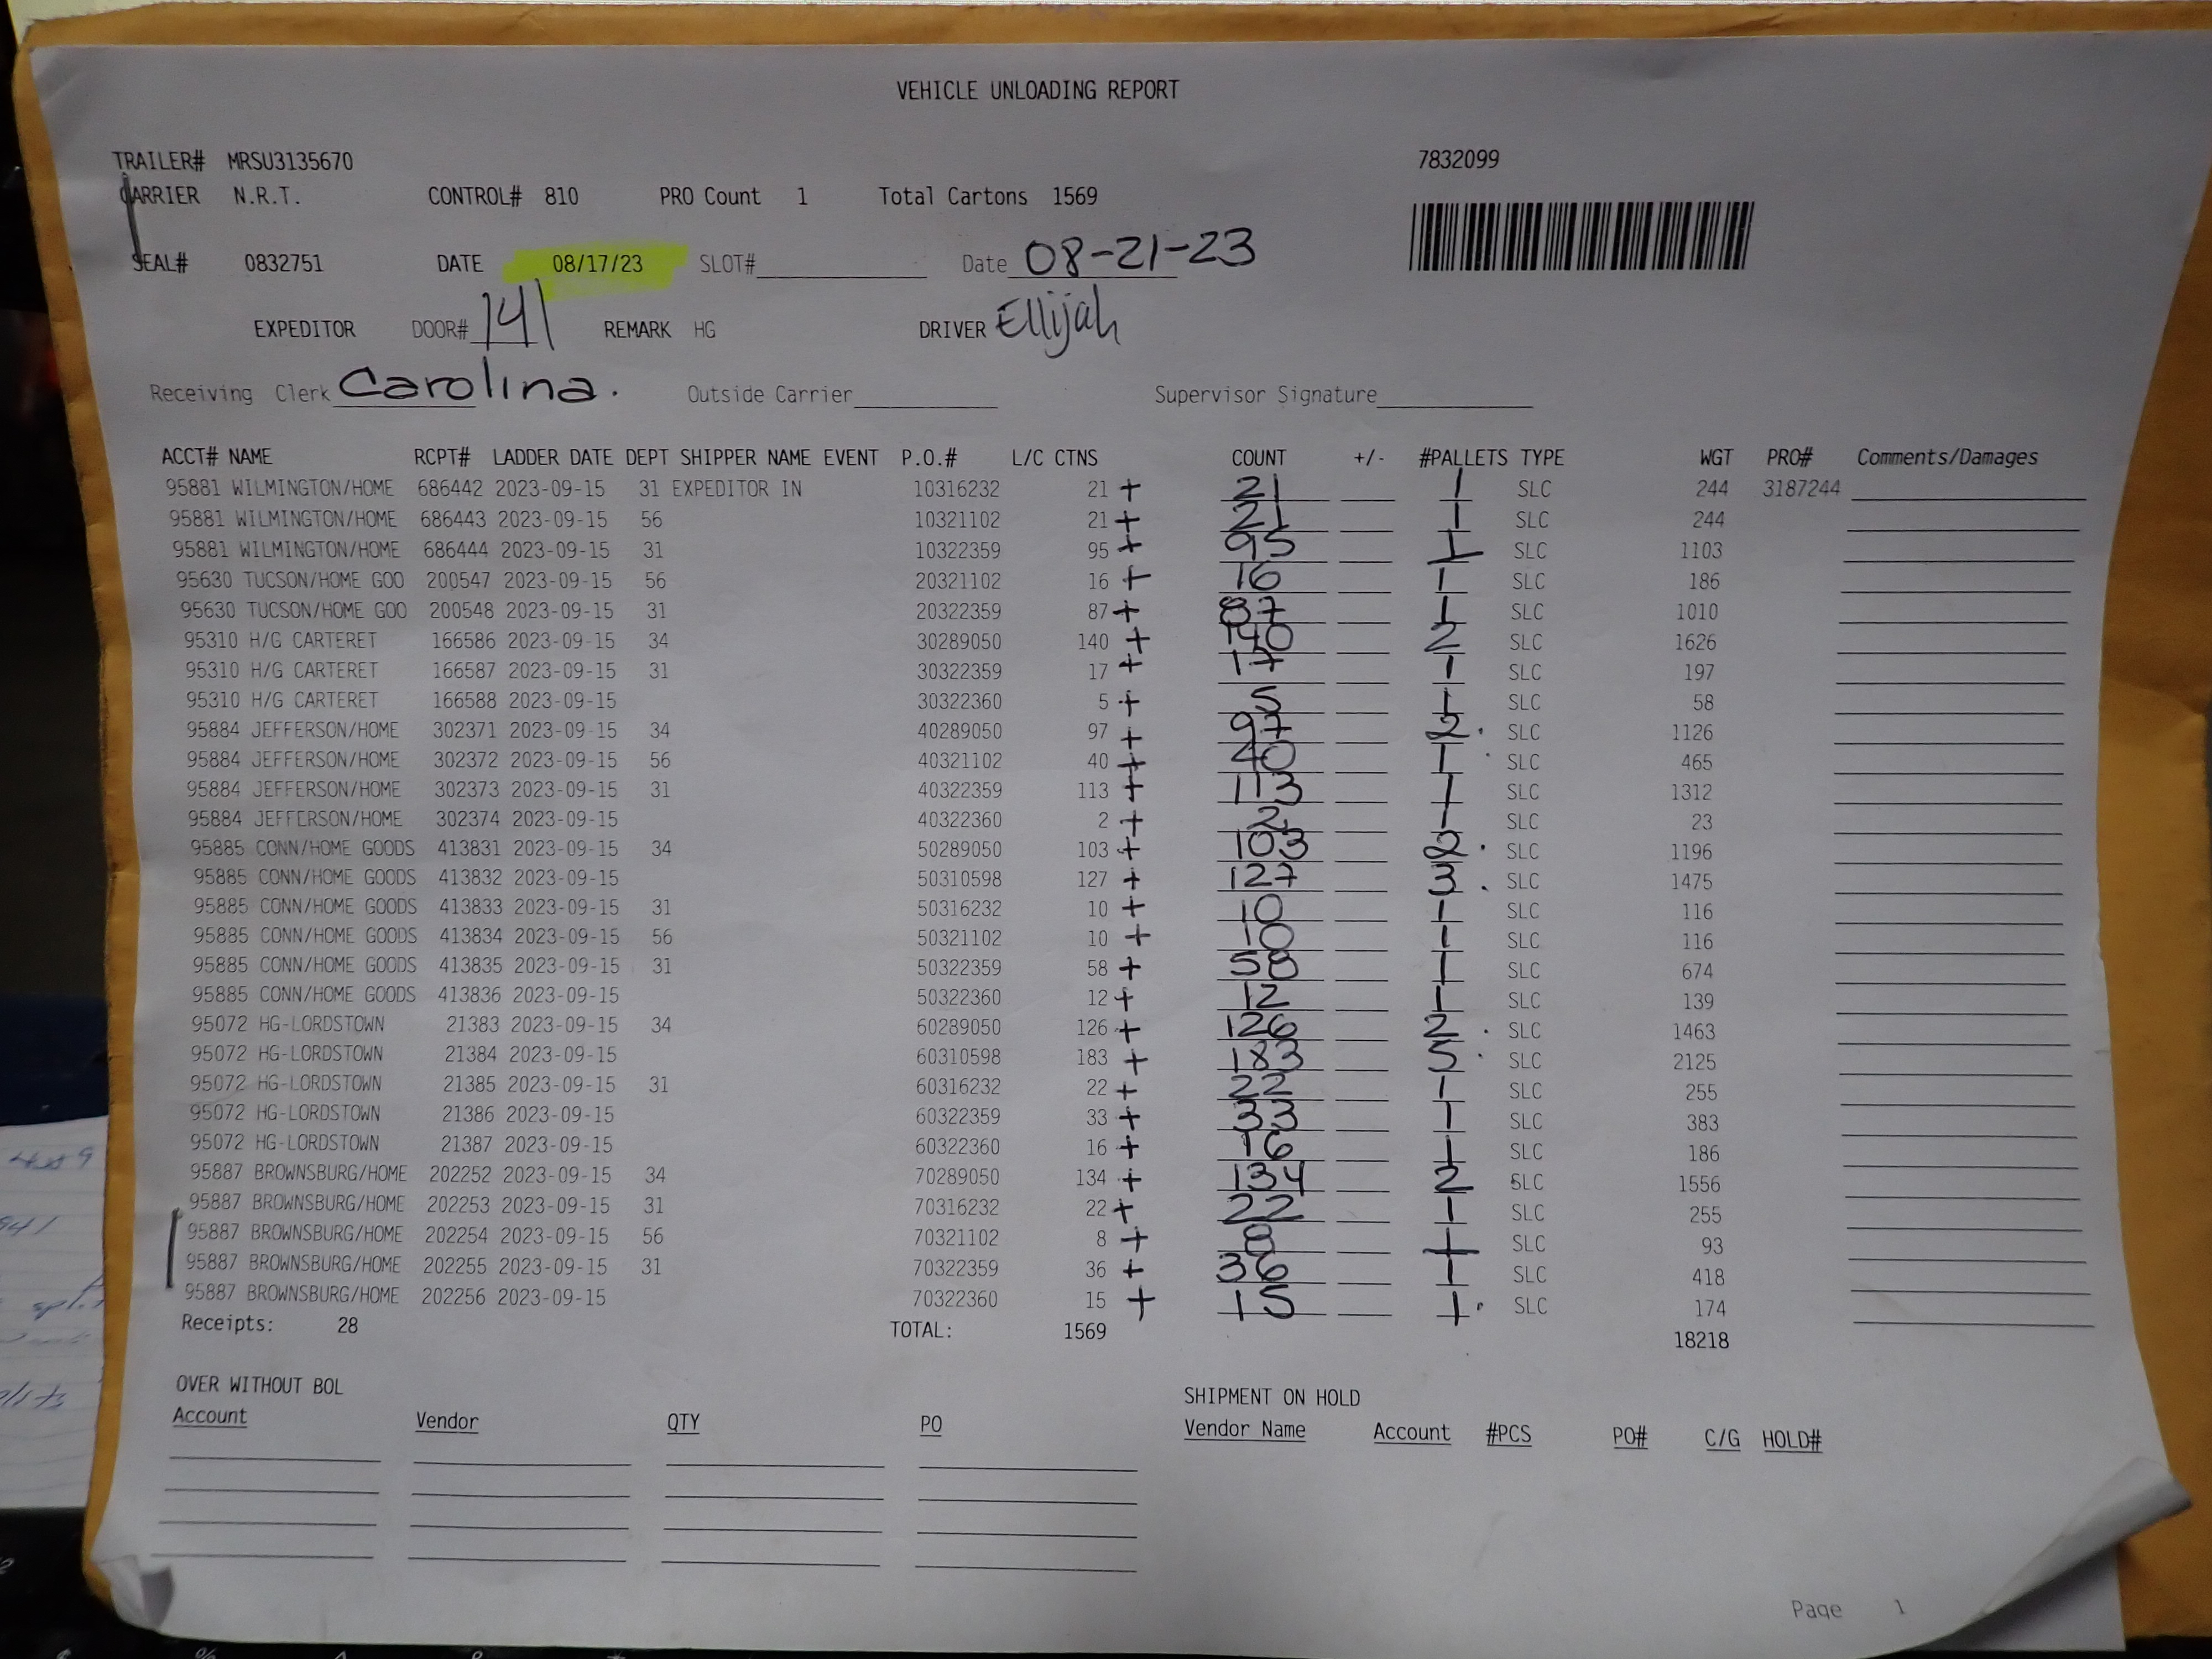 VEHICLE UNLOADING REPORT
TRAILER# MRSU3135670 7832099
CARRIER N.R.T. CONTROL# 810 PRO Count 1 Total Cartons 1569
SEAL# 0832751 DATE 08/17/23 SLOT# Date 08-21-23
EXPEDITOR DOOR# 141 REMARK HG DRIVER Ellijah
Receiving Clerk Carolina. Outside Carrier Supervisor Signature
ACCT# NAME RCPT# LADDER DATE DEPT SHIPPER NAME EVENT P.O.# L/C CTNS COUNT +/- #PALLETS TYPE WGT PRO# Comments/Damages
95881 WILMINGTON/HOME 686442 2023-09-15 31 EXPEDITOR IN 10316232 21 + 21 1 SLC 244 3187244
95881 WILMINGTON/HOME 686443 2023-09-15 56 10321102 21 + 21 1 SLC 244
95881 WILMINGTON/HOME 686444 2023-09-15 31 10322359 95 + 95 1 SLC 1103
95630 TUCSON/HOME GOO 200547 2023-09-15 56 20321102 16 + 16 1 SLC 186
95630 TUCSON/HOME GOO 200548 2023-09-15 31 20322359 87 + 87 1 SLC 1010
95310 H/G CARTERET 166586 2023-09-15 34 30289050 140 + 140 2 SLC 1626
95310 H/G CARTERET 166587 2023-09-15 31 30322359 17 + 17 1 SLC 197
95310 H/G CARTERET 166588 2023-09-15 30322360 5 + 5 1 SLC 58
95884 JEFFERSON/HOME 302371 2023-09-15 34 40289050 97 + 97 2 SLC 1126
95884 JEFFERSON/HOME 302372 2023-09-15 56 40321102 40 + 40 1 SLC 465
95884 JEFFERSON/HOME 302373 2023-09-15 31 40322359 113 + 113 1 SLC 1312
95884 JEFFERSON/HOME 302374 2023-09-15 40322360 2 + 2 1 SLC 23
95885 CONN/HOME GOODS 413831 2023-09-15 34 50289050 103 + 103 2 SLC 1196
95885 CONN/HOME GOODS 413832 2023-09-15 50310598 127 + 127 3 SLC 1475
95885 CONN/HOME GOODS 413833 2023-09-15 31 50316232 10 + 10 1 SLC 116
95885 CONN/HOME GOODS 413834 2023-09-15 56 50321102 10 + 10 1 SLC 116
95885 CONN/HOME GOODS 413835 2023-09-15 31 50322359 58 + 58 1 SLC 674
95885 CONN/HOME GOODS 413836 2023-09-15 50322360 12 + 12 1 SLC 139
95072 HG-LORDSTOWN 21383 2023-09-15 34 60289050 126 + 126 2 SLC 1463
95072 HG-LORDSTOWN 21384 2023-09-15 60310598 183 + 183 5 SLC 2125
95072 HG-LORDSTOWN 21385 2023-09-15 31 60316232 22 + 22 1 SLC 255
95072 HG-LORDSTOWN 21386 2023-09-15 60322359 33 + 33 1 SLC 383
95072 HG-LORDSTOWN 21387 2023-09-15 60322360 16 + 16 1 SLC 186
95887 BROWNSBURG/HOME 202252 2023-09-15 34 70289050 134 + 134 2 SLC 1556
95887 BROWNSBURG/HOME 202253 2023-09-15 31 70316232 22 + 22 1 SLC 255
95887 BROWNSBURG/HOME 202254 2023-09-15 56 70321102 8 + 8 1 SLC 93
95887 BROWNSBURG/HOME 202255 2023-09-15 31 70322359 36 + 36 1 SLC 418
95887 BROWNSBURG/HOME 202256 2023-09-15 70322360 15 + 15 1 SLC 174
Receipts: 28 TOTAL: 1569 18218
OVER WITHOUT BOL SHIPMENT ON HOLD
Account Vendor QTY PO Vendor Name Account #PCS PO# C/G HOLD#
Page 1